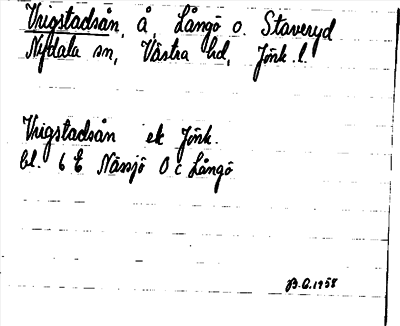 Vrigstadsån, å, Långö o. Staveryd
Nydala sn, Västra hd, Jönk. l.
Vrigstadsån ek Jönk.
bl. 6 E Nässjö 0 c Långö
B.G. 1958